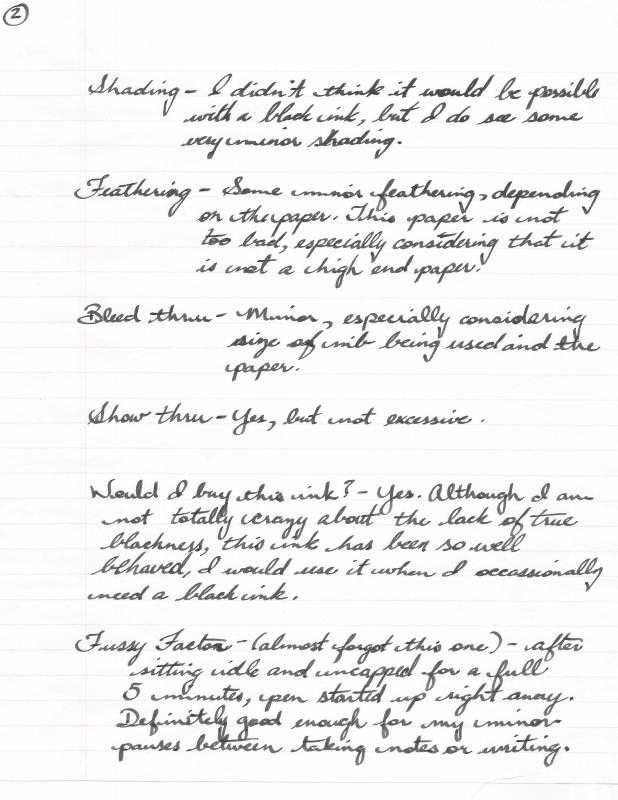 2
Shading - I didn't think it would be possible
with a black ink, but I do see some
very minor shading.
Feathering - Some minor feathering, depending
on the paper. This paper is not
too bad, especially considering that it
is not a high end paper.
Bleed thru - Minor, especially considering
size of nib being used and the
paper.
Show thru - Yes, but not excessive.
Would I buy this ink? - Yes. Although I am
not totally crazy about the lack of true
blackness, this ink has been so well
behaved, I would use it when I occassionally
need a black ink.
Fussy Factor - (almost forgot this one) - after
sitting idle and uncapped for a full
5 minutes, pen started up right away.
Definitely good enough for my minor
pauses between taking notes or writing.